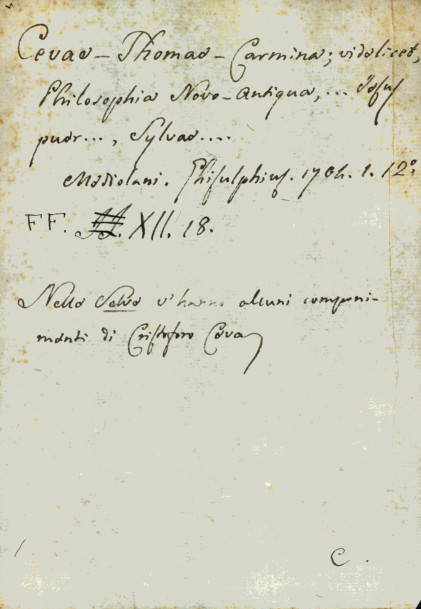 Cevae - Thomae - Carmina; videlicet,
Philosophia Novo-Antiqua, ... Jesus
puer ..., Sylvae ....
Mediolani. Ghisulphius. 1704. 1. 12°.
FF. XII. 18.
Nelle Selve v'hanno alcuni componi-
menti di Cristoforo Ceva
C.